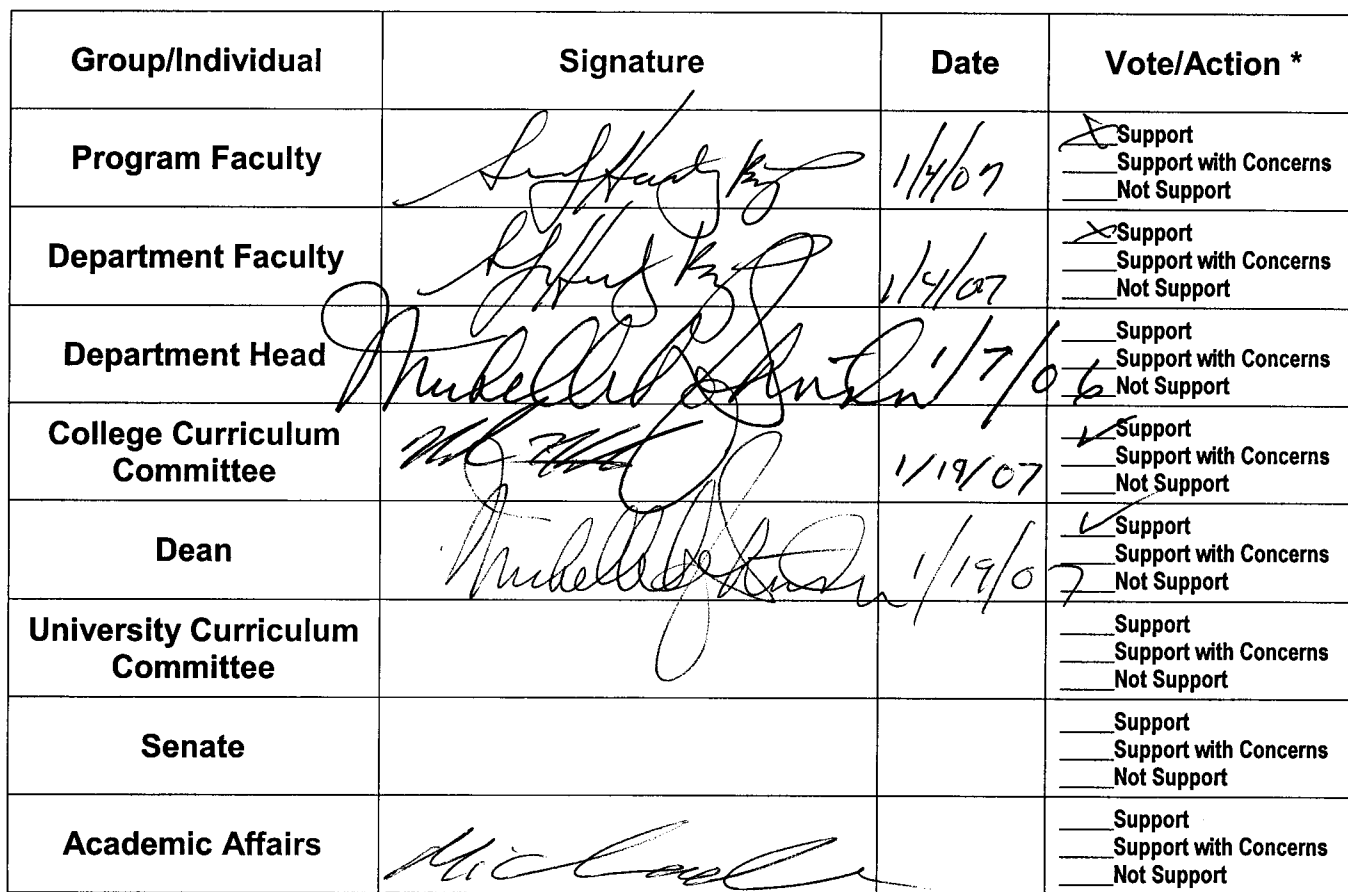 Group/Individual Signature Date Vote/Action *
Program Faculty 1/4/07
Support
Support with Concerns
Not Support
Department Faculty 1/4/07
Support
Support with Concerns
Not Support
Department Head Michelle 1/7/06
Support
Support with Concerns
Not Support
College Curriculum
Committee 1/19/07
Support
Support with Concerns
Not Support
Dean Michelle 1/19/07
Support
Support with Concerns
Not Support
University Curriculum
Committee
Support
Support with Concerns
Not Support
Senate
Support
Support with Concerns
Not Support
Academic Affairs
Support
Support with Concerns
Not Support